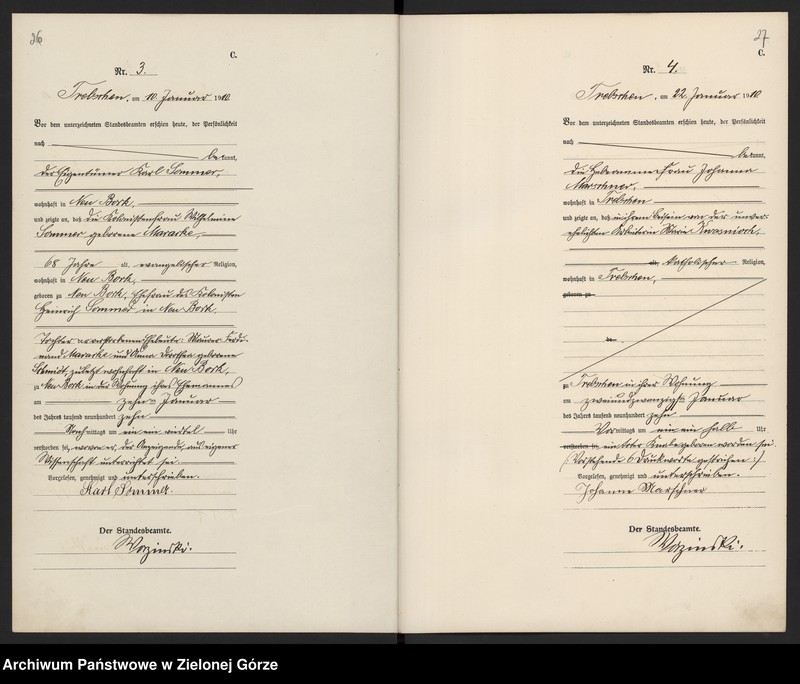 26
C.
Nr. 3.
Trebschen, am 10. Januar 1910.
Vor dem unterzeichneten Standesbeamten erschien heute, der Persönlichkeit
nach
bekannt,
der Eigentümer Karl Sommer,
wohnhaft in Neu Bork,
und zeigte an, daß die Kolonistenfrau Wilhelmine
Sommer geborene
68 Jahre alt, evangelischer Religion,
wohnhaft in Neu Bork,
geboren zu Neu Bork, Ehefrau des Kolonisten
Heinrich Sommer in Neu Bork,
Tochter der verstorbenen Eheleute: Maurer Ferdi-
nand und Anna Dorothea geborene
Schmidt, zuletzt wohnhaft in Neu Bork,
zu Neu Bork in der Wohnung ihres Ehemannes
am zehnten Januar
des Jahres tausend neunhundert zehn
Nachmittags um ein ein viertel Uhr
verstorben sei, wovon er, der Anzeigende, aus eigener
Wissenschaft unterrichtet sei.
Vorgelesen, genehmigt und unterschrieben.
Karl
Der Standesbeamte.
27
C.
Nr. 4.
Trebschen, am 22. Januar 1910.
Vor dem unterzeichneten Standesbeamten erschien heute, der Persönlichkeit
nach
bekannt,
die Hebamme Frau Johanna
Marschner,
wohnhaft in Trebschen
und zeigte an, daß in ihrem Beisein von der unver-
ehelichten Arbeiterin Marie
alt, katholischer Religion,
wohnhaft in Trebschen,
geboren zu
zu Trebschen in ihrer Wohnung
am zweiundzwanzigsten Januar
des Jahres tausend neunhundert zehn
Vormittags um ein ein halb Uhr
verstorben sei, ein toter Knabe geboren worden sei.
(Vorstehende 6 Druckworte gestrichen:/
Vorgelesen, genehmigt und unterschrieben.
Johanna Marschner
Der Standesbeamte.
Archiwum Państwowe w Zielonej Górze